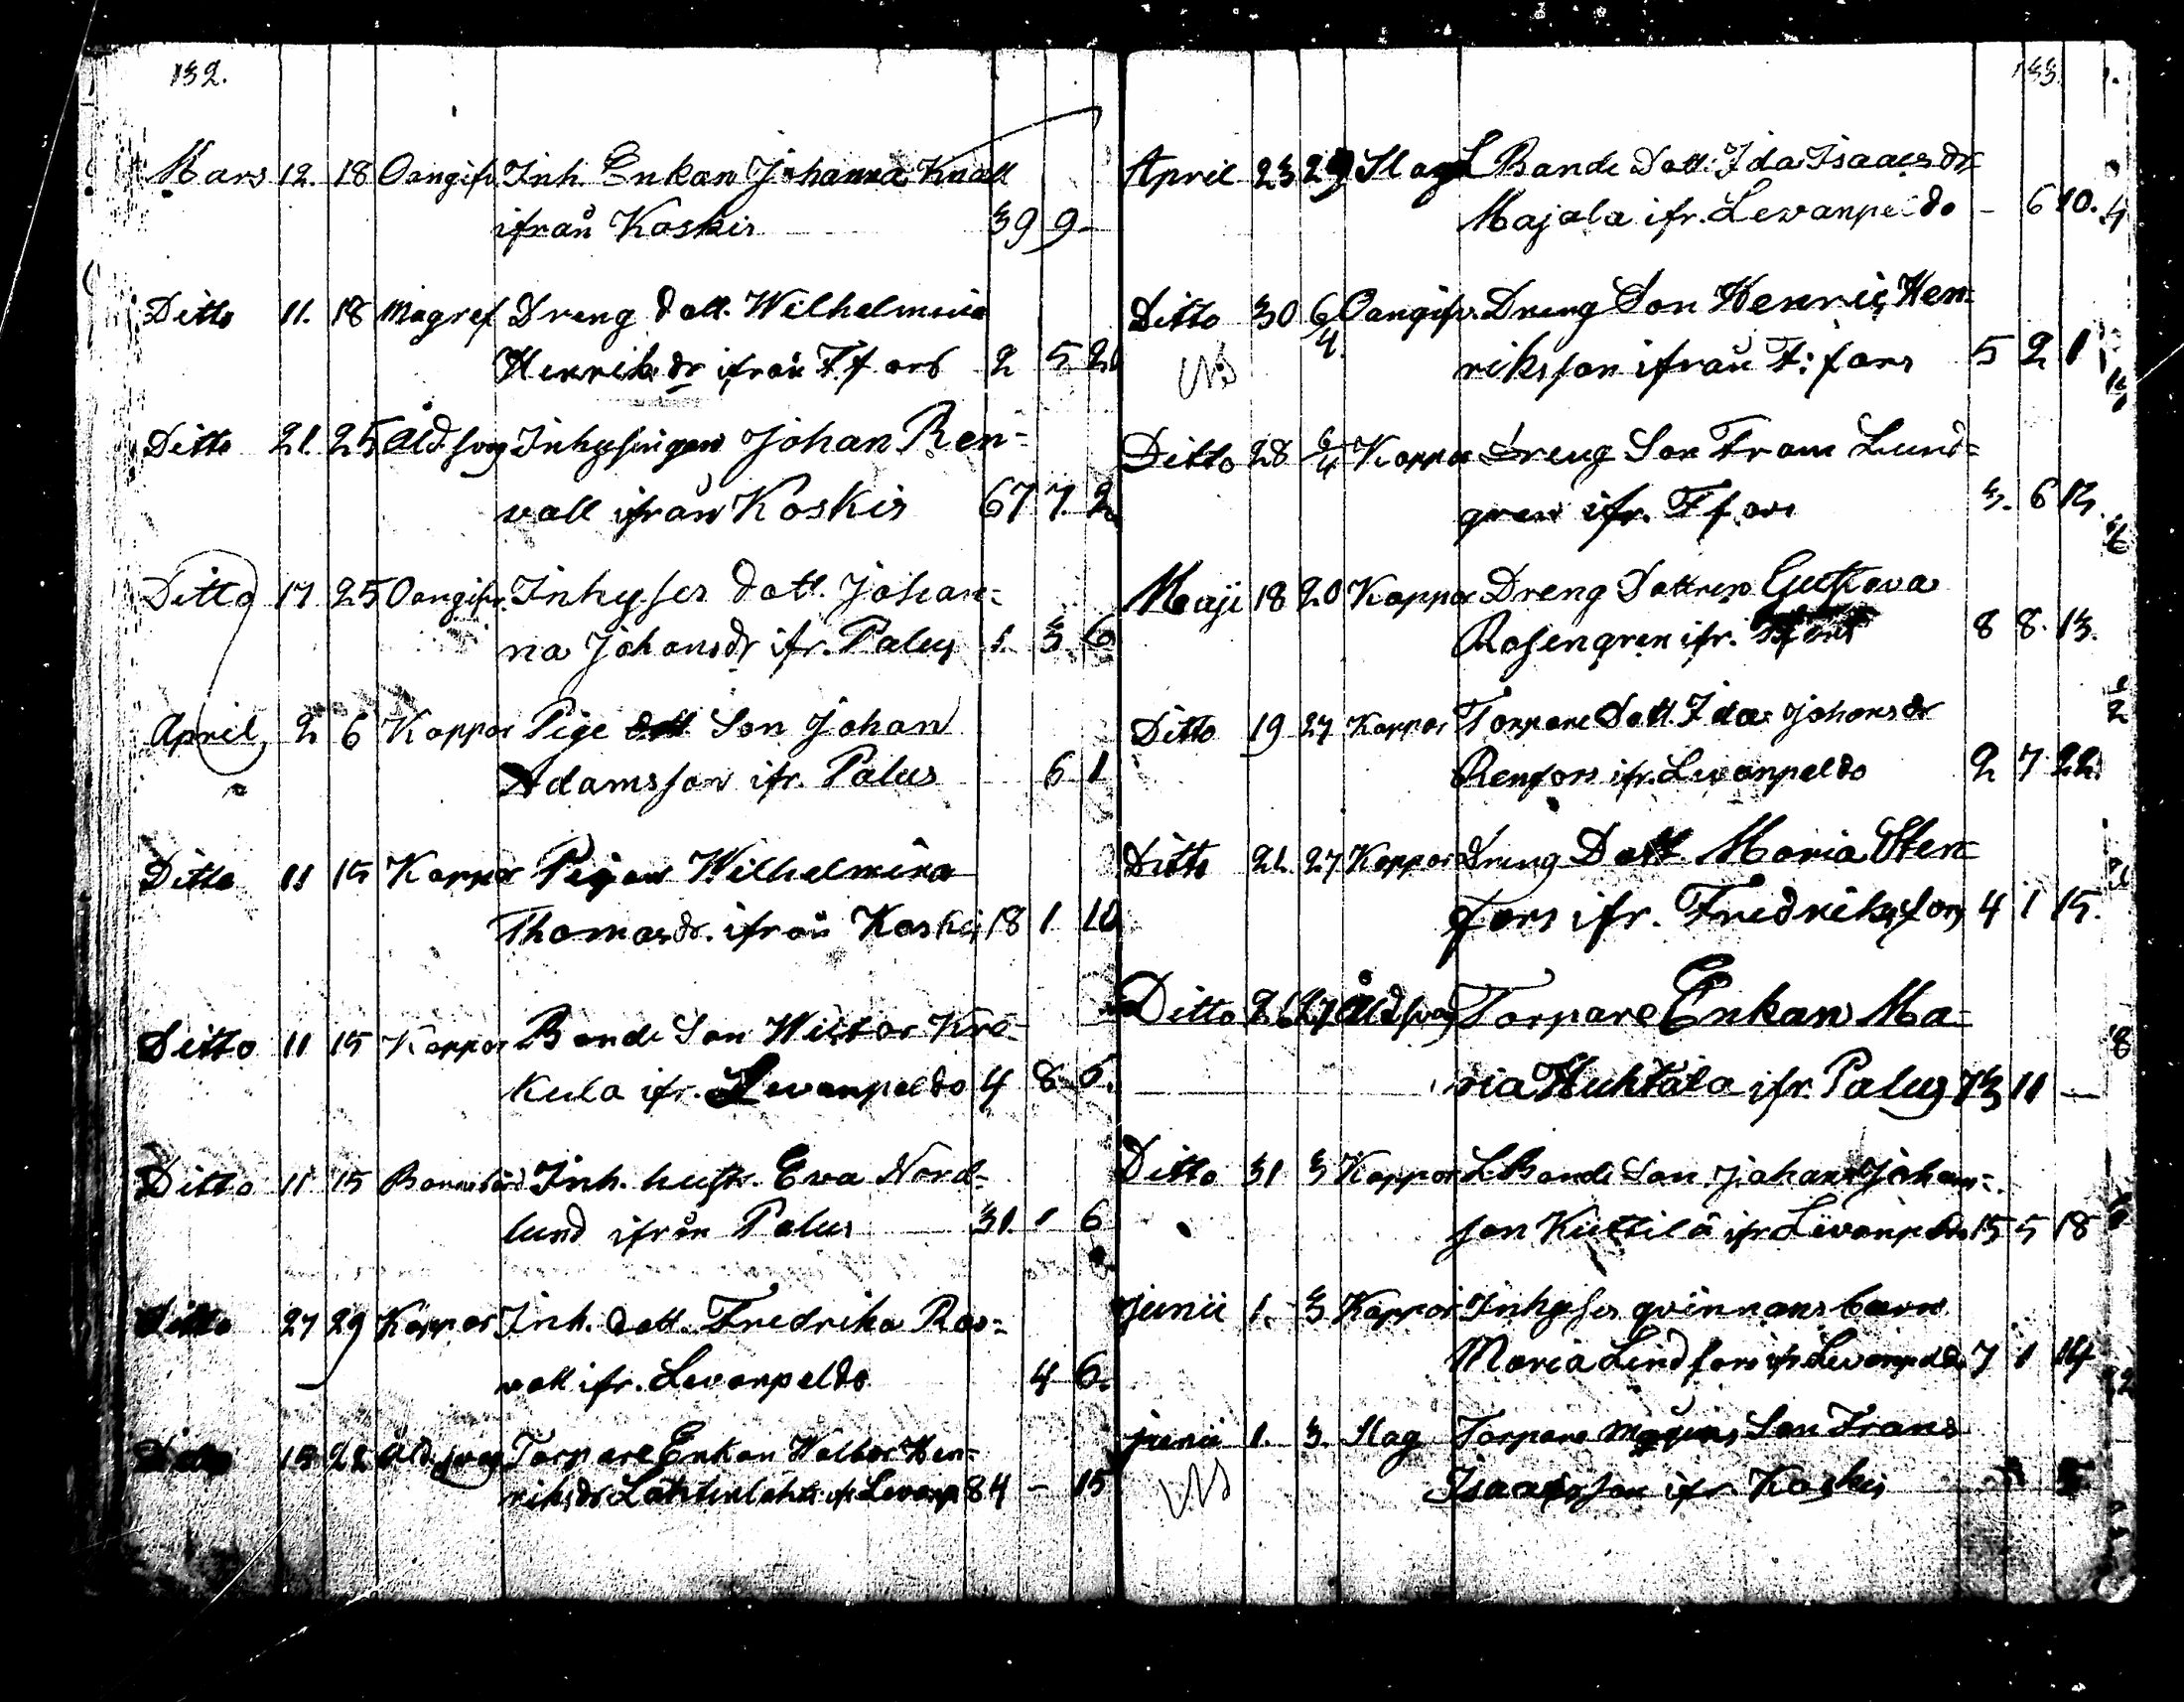 132.
Mars 12. 18 Oangifv. Inh. Enkan Johanna Knall
ifrån Koskis 39 9 -
Ditto 11. 18 Magref Dreng dott. Wilhelmina
Henriksdr ifrån F.fors 2 5 2
Ditto 21. 25 Åld.svag Inhysingen Johan Ren=
vall ifrån Koskis 67 7 2
Ditto 17 25 Oangifv. Inhyses dott. Johan=
na Johansdr ifr. Palus 1. 3 6
April 2 6 Koppor Pige Son Johan
Adamsson ifr. Palus 6 1
Ditto 11 15 Koppor Pigan Wilhelmina
Thomasdr. ifrån Koskis 18 1 10
Ditto 11 15 Koppor Bonde Son Wictor Krå=
kula ifr. Levanpeldo 4 8 5.
Ditto 11 15 Barnsbörd Inh. hustr. Eva Nord=
lund ifrån Palus 31. 1 6
Ditto 27 29 Koppor Inh. dott. Fredrika Ros=
vall ifr. Levanpeldo 4 6.
Ditto 15 22 Åld.svag Torpare Enkan Walbor Hen=
riksdr Lähtenlahti ifr. Levanp 84 - 15
133.
April 23 29 Slag L Bonde Dott. Ida Isaacsdr
Majala ifr. Levanpeldo - 6 10.
Ditto 30 6 Oangifv. Dreng Son Henric Hen=
4. riksson ifrån F:fors 5 2 1
Ditto 28 6/4 Koppor Dreng Son Frans Lund=
gren ifr. Ffors 3. 6 13.
Maji 18 20 Koppor Dreng Dottren Gustava
Rosengren ifr. Ffors 8 8. 13.
Ditto 19 27 Koppor Torpare Dott. Ida Johansdr
Renfors ifr. Levanpeldo 2 7 22.
Ditto 21. 27 Koppor Dreng Dott Maria Sten=
fors ifr. Fredriksfors 4 1 15.
Ditto 26 27 Åld.svag Torpare Enkan Ma=
ria Huhtala ifr. Palus 73 11 —
Ditto 31 3 Koppor L.Bonde Son Johan Johan=
son Küttilä ifr Levanpeldo 15 5 18
Junii 1. 3 Koppor Inhyses qvinnans barn
Maria Lindfors ifr Levanpeldo 7 1 14
Junii 1. 3. Slag Torpare Son Frans
Isaacsson ifr Koskis 5